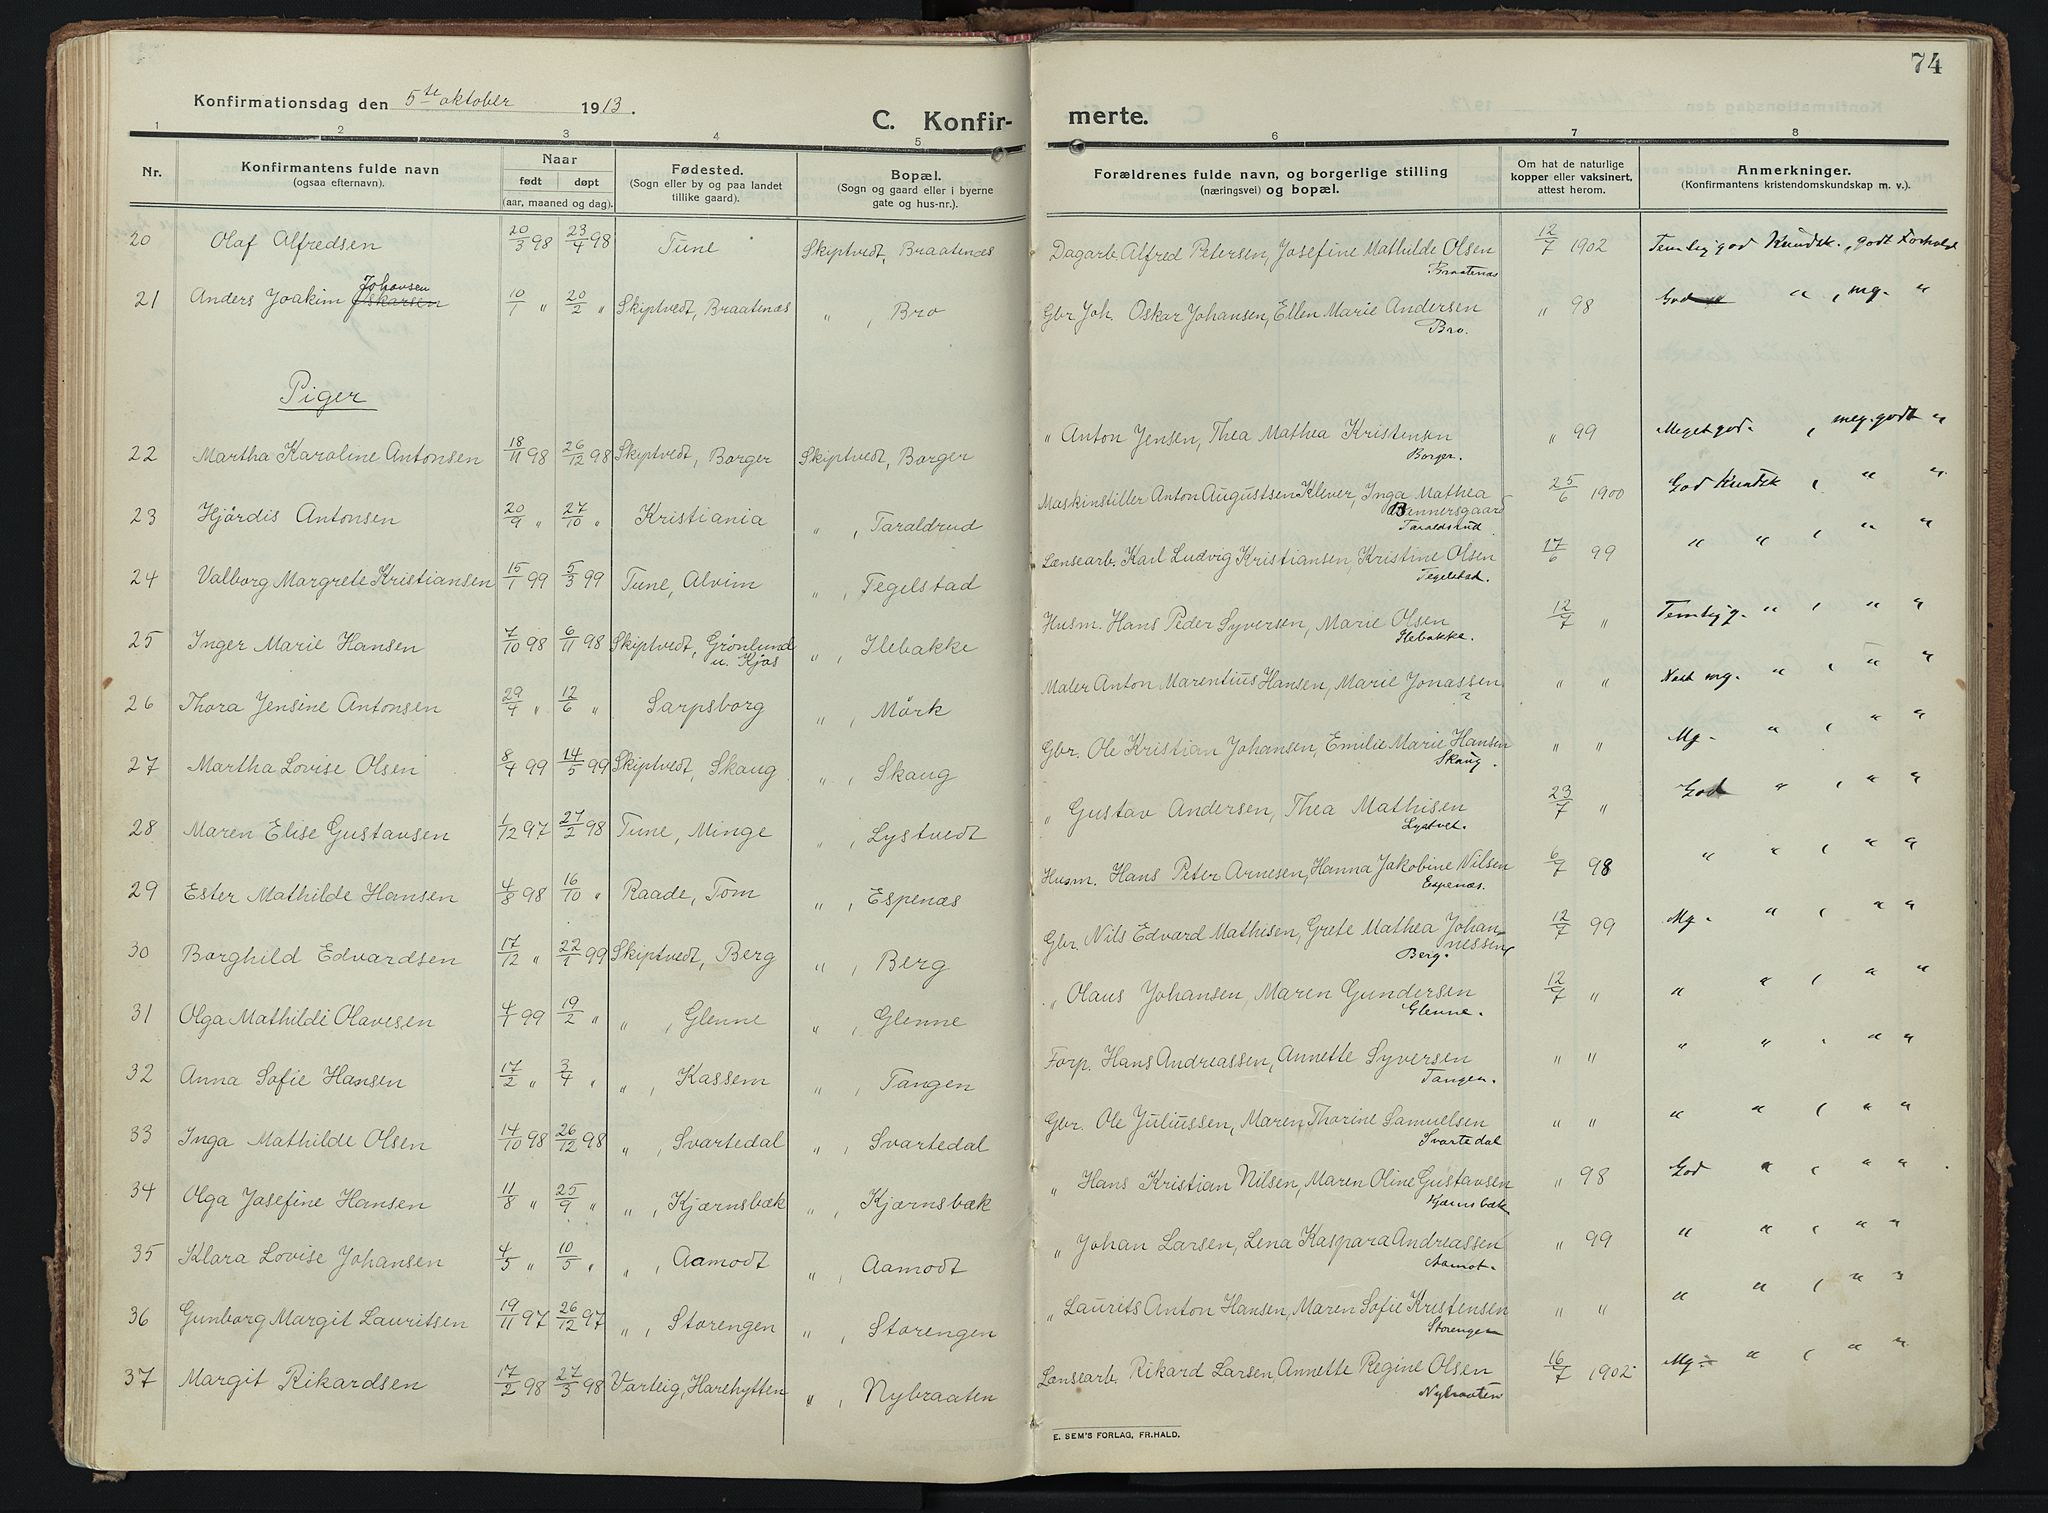 74
Konfirmationsdag den 5te oktober 1913.
C. Konfir- merte.
1 2 3 4 5 6 7 8
Nr. Konfirmantens fulde navn (ogsaa efternavn). Naar født døpt (aar, maaned og dag). Fødested. (Sogn eller by og paa landet tillike gaard). Bopæl. (Sogn og gaard eller i byerne gate og hus-nr.). Forældrenes fulde navn, og borgerlige stilling (næringsvei) og bopæl. Om hat de naturlige kopper eller vaksinert, attest herom. Anmerkninger. (Konfirmantens kristendomskundskap m. v.).
20 Olaf Alfredsen 20/3 98 23/4 98 Tune Skiptvedt, Braatenæs Dagarb. Alfred Petersen, Josefine Mathilde Olsen Braatenæs 12/7 1902 Temlig god Kundsk., godt Forhold
21 Anders Joakim Oskarsen Johansen 10/1 " 20/2 " Skiptvedt, Braatenæs " , Bro Gbr Joh. Oskar Johansen, Ellen Marie Andersen Bro. " 98 God " , mg. "
Piger
22 Martha Karoline Antonsen 18/11 98 26/12 98 Skiptvedt, Borger Skiptvedt, Borger " Anton Jensen, Thea Mathea Kristensen Borger. " 99 Meget god. , meg. godt "
23 Hjördis Antonsen 20/9 " 27/10 " Kristiania " , Taraldrud Maskinstiller Anton Augustsen Klever, Inga Mathea Bennersgaard Taraldsrud 25/6 1900 God Kundsk , " "
24 Valborg Margrete Kristiansen 15/1 99 5/3 99 Tune, Alvim " , Tegelstad Lænsearb. Karl Ludvig Kristiansen, Kristine Olsen Tegelstad. 17/6 99 " " , " "
25 Inger Marie Hansen 7/10 98 6/11 98 Skiptvedt, Grönlund u. Kjos " , Ilebakke Husm. Hans Peder Syversen, Marie Olsen Ilebakke. 12/7 " Temlig g. " , " "
26 Thora Jensine Antonsen 29/4 " 12/6 " Sarpsborg " , Mörk Maler Anton Marentius Hansen, Marie Jonassen ? " " mg. " , " "
27 Martha Lovise Olsen 8/4 99 14/5 99 Skiptvedt, Skaug " , Skaug Gbr. Ole Kristian Johansen, Emilie Marie Hansen Skaug. " " Mg. " , " "
28 Maren Elise Gustavsen 1/12 97 27/2 98 Tune, Minge " , Lystvedt " Gustav Andersen, Thea Mathisen Lystvet. 23/7 " God " , " "
29 Ester Mathilde Hansen 4/8 98 16/10 " Raade, Tom " , Espenæs Husm. Hans Peter Arnesen, Hanna Jakobine Nilsen Espenæs. 6/7 98 " " , " "
30 Borghild Edvardsen 17/12 " 22/1 99 Skiptvedt, Berg " , Berg Gbr. Nils Edvard Mathisen, Grete Mathea Johannessen Berg. 12/7 99 Mg. " , " "
31 Olga Mathilde Olavesen 4/1 99 19/2 " " , Glenne " , Glenne " Olaus Johansen, Maren Gundersen Glenne. 12/7 " " " , " "
32 Anna Sofie Hansen 17/2 " 3/4 " " , Kassem " , Tangen Forp. Hans Andreassen, Annette Syversen Tangen. " " " " , " "
33 Inga Mathilde Olsen 14/10 98 26/12 98 " , Svartedal " , Svartedal Gbr. Ole Juliussen, Maren Thorine Samuelsen Svartedal " " " " , " "
34 Olga Josefine Hansen 11/8 " 25/9 " " , Kjærnsbæk " , Kjærnsbæk " Hans Kristian Nilsen, Maren Oline Gustavsen Kjærnsbæk " 98 God " , " "
35 Klara Lovise Johansen 4/5 " 10/5 " " , Aamodt " , Aamodt " Johan Larsen, Lena Kaspara Andreassen Aamot. " 99 " " , " "
36 Gunborg Margit Lauritsen 19/11 97 26/12 97 " , Storengen " , Storengen " Laurits Anton Hansen, Maren Sofie Kristensen Storengen " " " " , " "
37 Margit Rikardsen 17/2 98 27/3 98 Varteig, Harehytten " , Nybraaten Lænsearb. Rikard Larsen, Annette Regine Olsen Nybraaten 16/7 1902 Mg. " , " "
E. SEM'S FORLAG, FR.HALD.